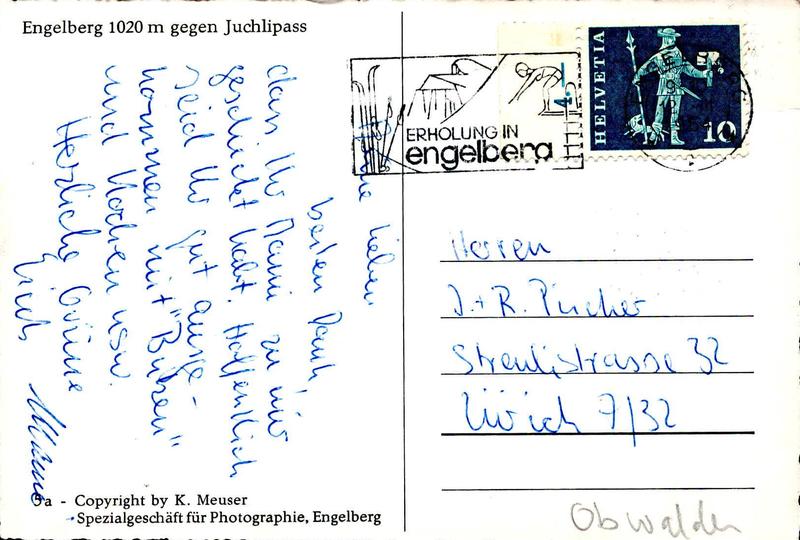 Engelberg 1020 m gegen Juchlipass
Meine lieben
besten Dank,
dass Ihr Mami zu mir
geschickt habt. Hoffentlich
seid Ihr gut ausge-
kommen mit
und Kochen usw.
Herzliche Grüsse
ERHOLUNG IN
engelberg
4.–
HELVETIA
10
Herren
J.+R.
Streulistrasse 32
Zürich 7/32
Obwalden
a - Copyright by K. Meuser
Spezialgeschäft für Photographie, Engelberg